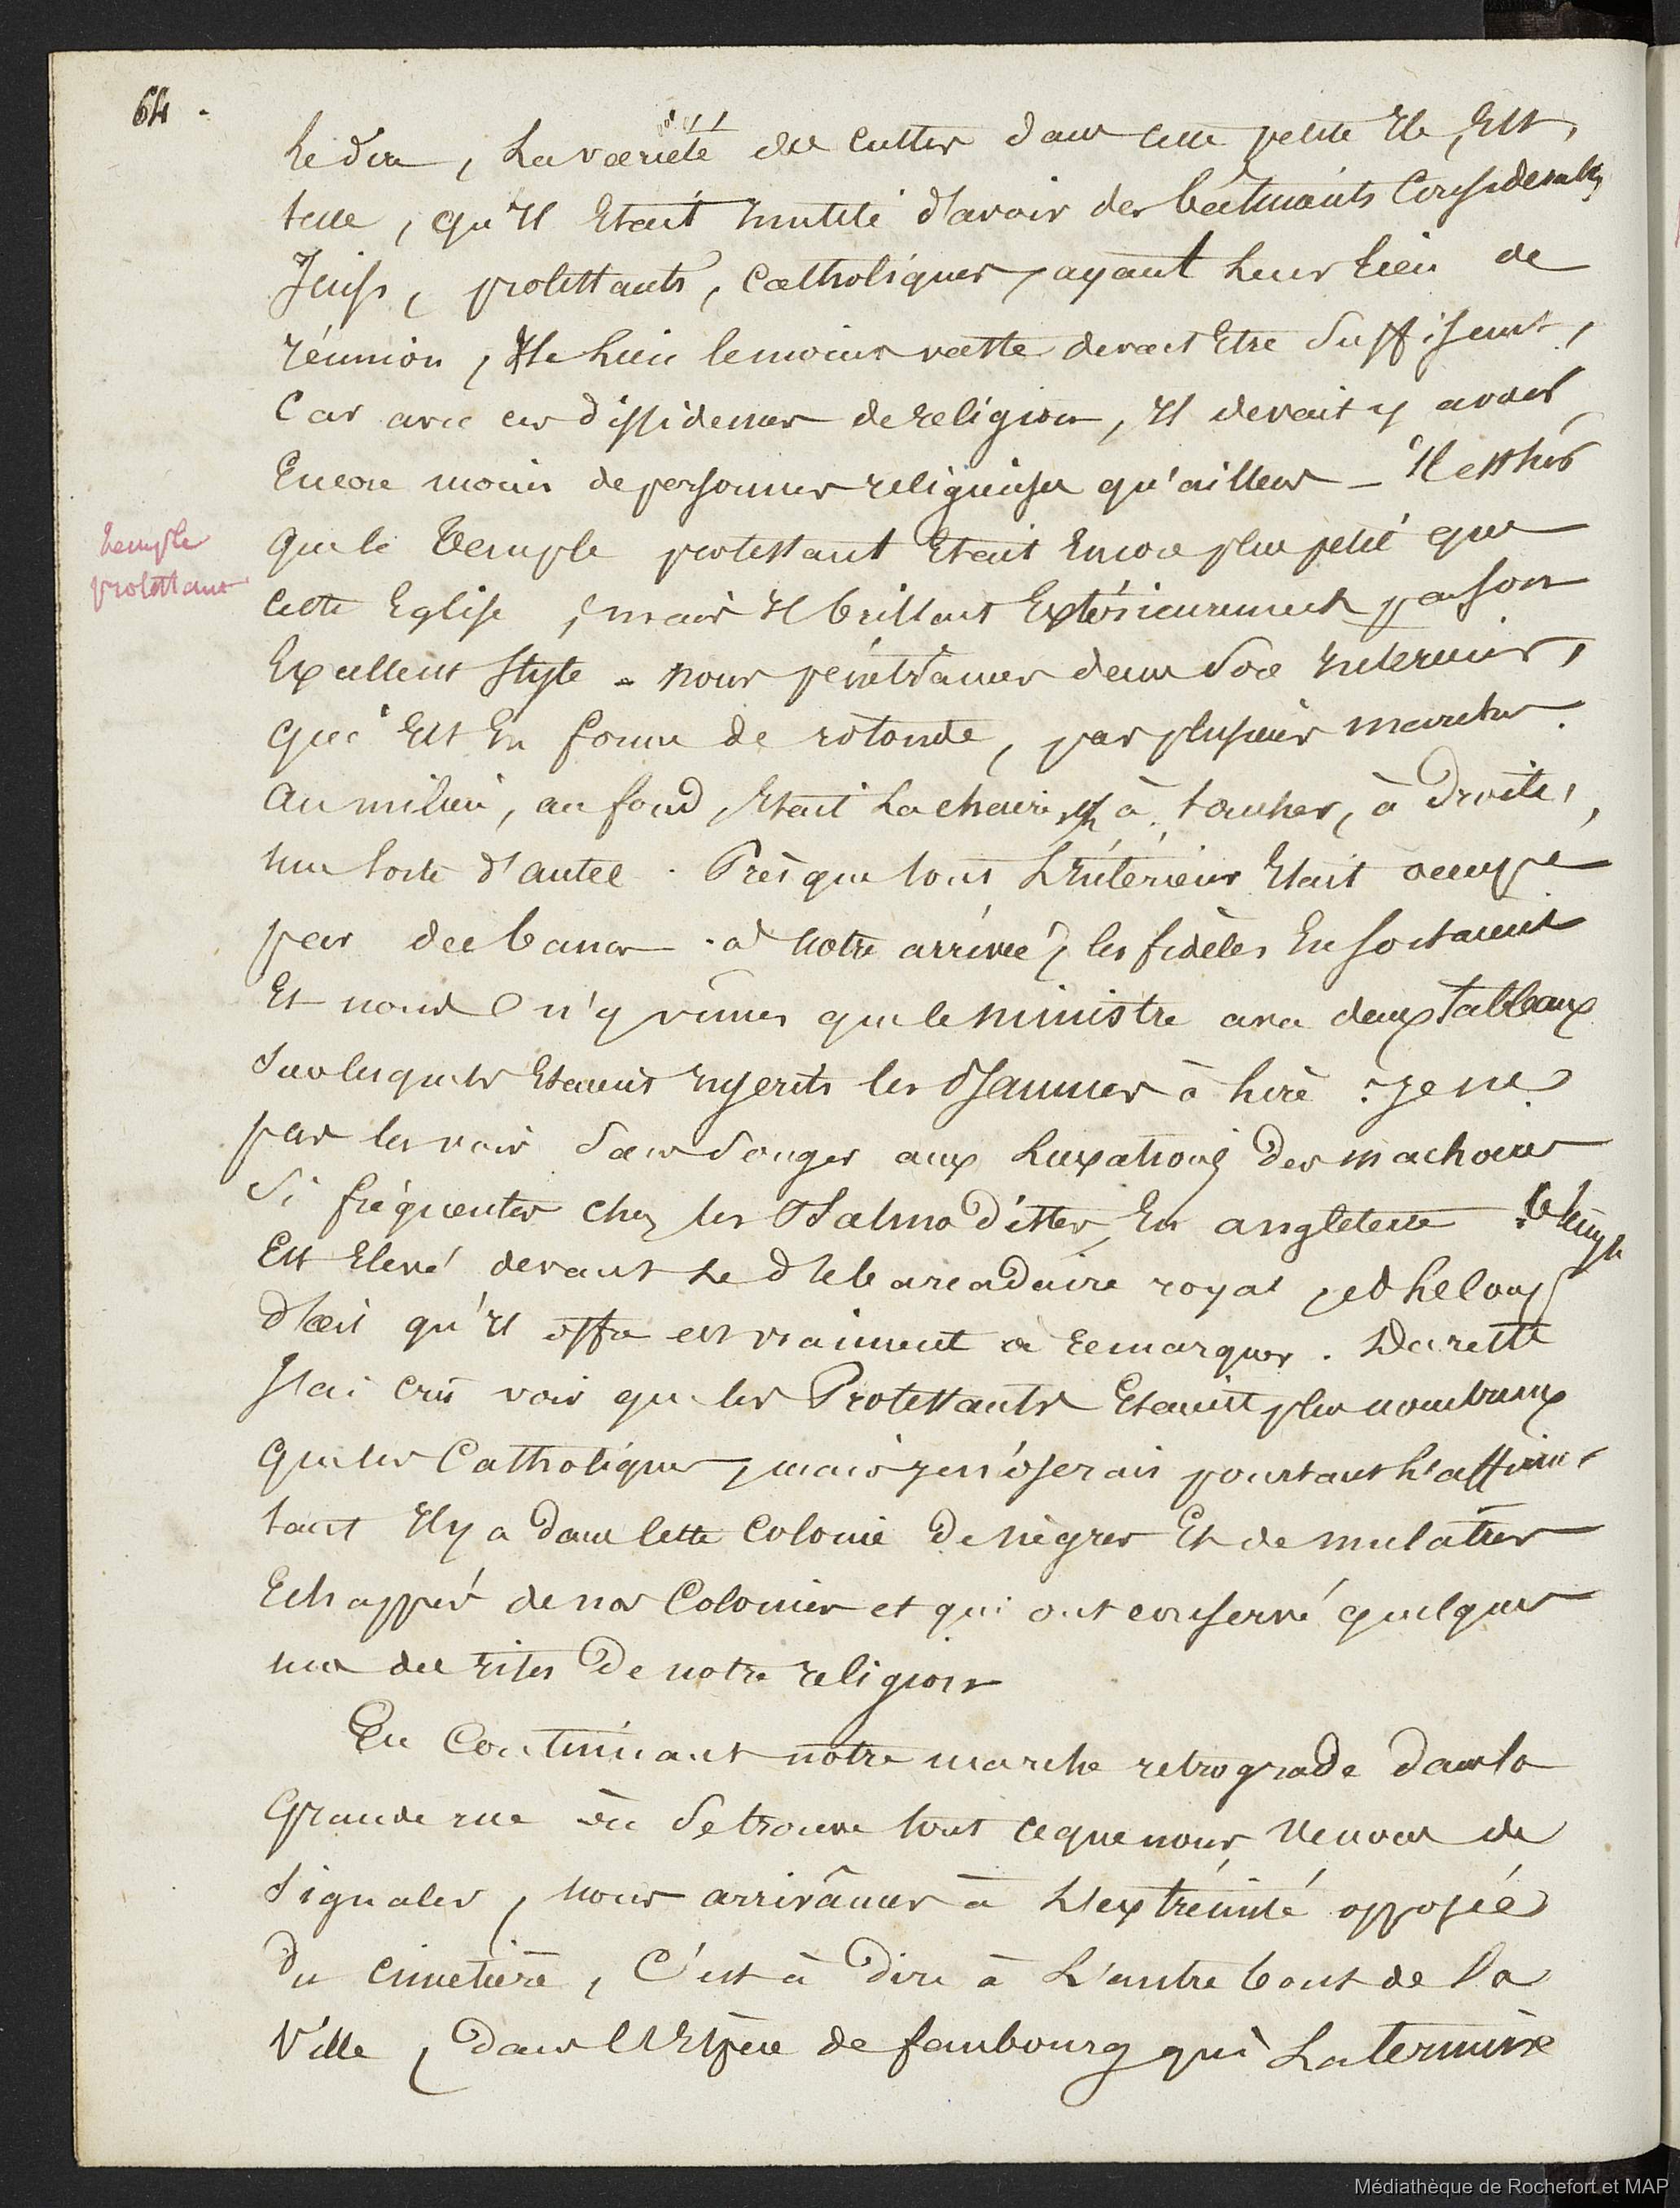 64.
Le dire, La variété des cultes dans cette petite Ile, Est,
telle, qu'Il Etait Inutile d'avoir des bâtiments Considerables
Juifs, protestants, Catholiques, ayant Leur lieu de
réunion, Le Lieu le moins vaste devait Etre Suffisant,
Car avec ces dissidences de religion, Il devait y avoir
Encore moins de personnes religieuses qu'ailleurs - Il est sûr
temple
protestant
que le Temple protestant Etait Encore plus petit que
cette Eglise, mais Il brillait Extérieurement par son
Excellent style - nous pénétrâmes dans Son Interieur,
qui Est En forme de rotonde, par plusieurs marches.
Au milieu, au fond, Etait La chaire, à toucher, à Droite,
une sorte d'autel. Presque tout L'Intérieur Etait occupé
par des bancs. à notre arrivée, les fidèles En sortaient
Et nous n'y vîmes que le ministre avec deux Tableaux
Sur lesquels Etaient Inscrits les Psaumes à lire. Je ne
pas les voir Sans Songer aux Luxations Des machoires
Si fréquentes chez les Psalmodistes En angleterre. le temple
Est Elevé devant Le royal, et le coup
d'œil qu'Il offre est vraiment à remarquer. Du reste
J'ai crû voir que les Protestants Etaient plus nombreux
que les Catholiques, mais je n'oserais pourtant L'affirmer
tant Il y a Dans cette Colonie De nègres Et de mulâtres
Echappés de nos Colonies et qui ont conservé quelques
uns des rites De notre religion
En Continuant notre marche retrograde Dans la
Grande rue où Se trouve tout ce que nous venons de
Signaler, nous arrivâmes à L'extrémité opposée
Du cimetière, C'est à Dire à L'autre bout de la
Ville, Dans l'Espèce de faubourg qui La termine
Médiathèque de Rochefort et MAP